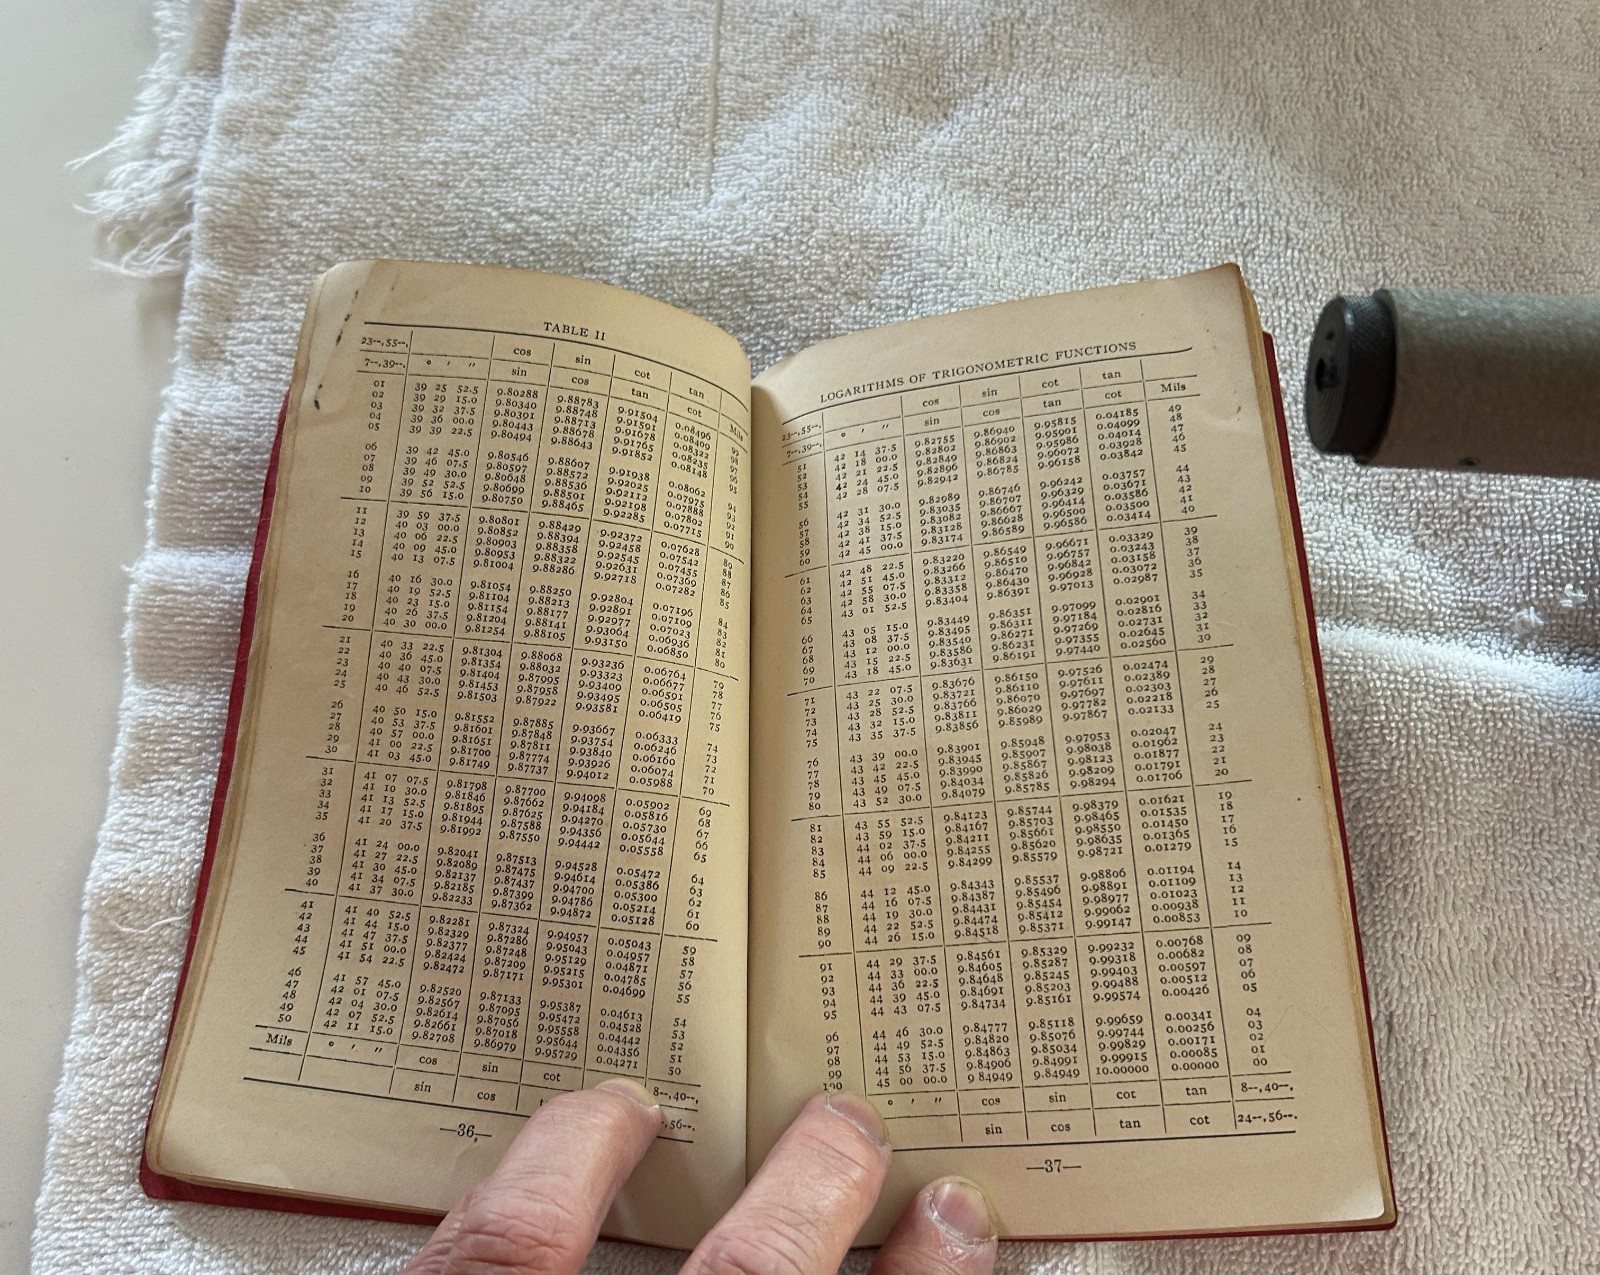 TABLE II
23--,55--, cos sin cot tan
7--,39--, ° ′ ″ sin cos tan cot Mils
01 39 25 52.5 9.80288 9.88783 9.91504 0.08496 99
02 39 29 15.0 9.80340 9.88748 9.91591 0.08409 98
03 39 32 37.5 9.80391 9.88713 9.91678 0.08322 97
04 39 36 00.0 9.80443 9.88678 9.91765 0.08235 96
05 39 39 22.5 9.80494 9.88643 9.91852 0.08148 95
06 39 42 45.0 9.80546 9.88607 9.91938 0.08062 94
07 39 46 07.5 9.80597 9.88572 9.92025 0.07975 93
08 39 49 30.0 9.80648 9.88536 9.92112 0.07888 92
09 39 52 52.5 9.80699 9.88501 9.92198 0.07802 91
10 39 56 15.0 9.80750 9.88465 9.92285 0.07715 90
11 39 59 37.5 9.80801 9.88429 9.92372 0.07628 89
12 40 03 00.0 9.80852 9.88394 9.92458 0.07542 88
13 40 06 22.5 9.80903 9.88358 9.92545 0.07455 87
14 40 09 45.0 9.80953 9.88322 9.92631 0.07369 86
15 40 13 07.5 9.81004 9.88286 9.92718 0.07282 85
16 40 16 30.0 9.81054 9.88250 9.92804 0.07196 84
17 40 19 52.5 9.81104 9.88213 9.92891 0.07109 83
18 40 23 15.0 9.81154 9.88177 9.92977 0.07023 82
19 40 26 37.5 9.81204 9.88141 9.93064 0.06936 81
20 40 30 00.0 9.81254 9.88105 9.93150 0.06850 80
21 40 33 22.5 9.81304 9.88068 9.93236 0.06764 79
22 40 36 45.0 9.81354 9.88032 9.93323 0.06677 78
23 40 40 07.5 9.81404 9.87995 9.93409 0.06591 77
24 40 43 30.0 9.81453 9.87958 9.93495 0.06505 76
25 40 46 52.5 9.81503 9.87922 9.93581 0.06419 75
26 40 50 15.0 9.81552 9.87885 9.93667 0.06333 74
27 40 53 37.5 9.81601 9.87848 9.93754 0.06246 73
28 40 57 00.0 9.81651 9.87811 9.93840 0.06160 72
29 41 00 22.5 9.81700 9.87774 9.93926 0.06074 71
30 41 03 45.0 9.81749 9.87737 9.94012 0.05988 70
31 41 07 07.5 9.81798 9.87700 9.94098 0.05902 69
32 41 10 30.0 9.81846 9.87662 9.94184 0.05816 68
33 41 13 52.5 9.81895 9.87625 9.94270 0.05730 67
34 41 17 15.0 9.81944 9.87588 9.94356 0.05644 66
35 41 20 37.5 9.81992 9.87550 9.94442 0.05558 65
36 41 24 00.0 9.82041 9.87513 9.94528 0.05472 64
37 41 27 22.5 9.82089 9.87475 9.94614 0.05386 63
38 41 30 45.0 9.82137 9.87437 9.94700 0.05300 62
39 41 34 07.5 9.82185 9.87399 9.94786 0.05214 61
40 41 37 30.0 9.82233 9.87362 9.94872 0.05128 60
41 41 40 52.5 9.82281 9.87324 9.94957 0.05043 59
42 41 44 15.0 9.82329 9.87286 9.95043 0.04957 58
43 41 47 37.5 9.82377 9.87248 9.95129 0.04871 57
44 41 51 00.0 9.82424 9.87209 9.95215 0.04785 56
45 41 54 22.5 9.82472 9.87171 9.95301 0.04699 55
46 41 57 45.0 9.82520 9.87133 9.95387 0.04613 54
47 42 01 07.5 9.82567 9.87095 9.95472 0.04528 53
48 42 04 30.0 9.82614 9.87056 9.95558 0.04442 52
49 42 07 52.5 9.82661 9.87018 9.95644 0.04356 51
50 42 11 15.0 9.82708 9.86979 9.95729 0.04271 50
Mils ° ′ ″ cos sin cot 8--,40--,
sin cos ,56--.
—36—
LOGARITHMS OF TRIGONOMETRIC FUNCTIONS
23--,55--, cos sin cot tan
7--,39--, ° ′ ″ sin cos tan cot Mils
51 42 14 37.5 9.82755 9.86940 9.95815 0.04185 49
52 42 18 00.0 9.82802 9.86902 9.95901 0.04099 48
53 42 21 22.5 9.82849 9.86863 9.95986 0.04014 47
54 42 24 45.0 9.82896 9.86824 9.96072 0.03928 46
55 42 28 07.5 9.82942 9.86785 9.96158 0.03842 45
56 42 31 30.0 9.82989 9.86746 9.96242 0.03757 44
57 42 34 52.5 9.83035 9.86707 9.96329 0.03671 43
58 42 38 15.0 9.83082 9.86667 9.96414 0.03586 42
59 42 41 37.5 9.83128 9.86628 9.96500 0.03500 41
60 42 45 00.0 9.83174 9.86589 9.96586 0.03414 40
61 42 48 22.5 9.83220 9.86549 9.96671 0.03329 39
62 42 51 45.0 9.83266 9.86510 9.96757 0.03243 38
63 42 55 07.5 9.83312 9.86470 9.96842 0.03158 37
64 42 58 30.0 9.83358 9.86430 9.96928 0.03072 36
65 43 01 52.5 9.83404 9.86391 9.97013 0.02987 35
66 43 05 15.0 9.83449 9.86351 9.97099 0.02901 34
67 43 08 37.5 9.83495 9.86311 9.97184 0.02816 33
68 43 12 00.0 9.83540 9.86271 9.97269 0.02731 32
69 43 15 22.5 9.83586 9.86231 9.97355 0.02645 31
70 43 18 45.0 9.83631 9.86191 9.97440 0.02560 30
71 43 22 07.5 9.83676 9.86150 9.97526 0.02474 29
72 43 25 30.0 9.83721 9.86110 9.97611 0.02389 28
73 43 28 52.5 9.83766 9.86070 9.97697 0.02303 27
74 43 32 15.0 9.83811 9.86029 9.97782 0.02218 26
75 43 35 37.5 9.83856 9.85989 9.97867 0.02133 25
76 43 39 00.0 9.83901 9.85948 9.97953 0.02047 24
77 43 42 22.5 9.83945 9.85907 9.98038 0.01962 23
78 43 45 45.0 9.83990 9.85867 9.98123 0.01877 22
79 43 49 07.5 9.84034 9.85826 9.98209 0.01791 21
80 43 52 30.0 9.84079 9.85785 9.98294 0.01706 20
81 43 55 52.5 9.84123 9.85744 9.98379 0.01621 19
82 43 59 15.0 9.84167 9.85703 9.98465 0.01535 18
83 44 02 37.5 9.84211 9.85661 9.98550 0.01450 17
84 44 06 00.0 9.84255 9.85620 9.98635 0.01365 16
85 44 09 22.5 9.84299 9.85579 9.98721 0.01279 15
86 44 12 45.0 9.84343 9.85537 9.98806 0.01194 14
87 44 16 07.5 9.84387 9.85496 9.98891 0.01109 13
88 44 19 30.0 9.84431 9.85454 9.98977 0.01023 12
89 44 22 52.5 9.84474 9.85412 9.99062 0.00938 11
90 44 26 15.0 9.84518 9.85371 9.99147 0.00853 10
91 44 29 37.5 9.84561 9.85329 9.99232 0.00768 09
92 44 33 00.0 9.84605 9.85287 9.99318 0.00682 08
93 44 36 22.5 9.84648 9.85245 9.99403 0.00597 07
94 44 39 45.0 9.84691 9.85203 9.99488 0.00512 06
95 44 43 07.5 9.84734 9.85161 9.99574 0.00426 05
96 44 46 30.0 9.84777 9.85118 9.99659 0.00341 04
97 44 49 52.5 9.84820 9.85076 9.99744 0.00256 03
98 44 53 15.0 9.84863 9.85034 9.99829 0.00171 02
99 44 56 37.5 9.84906 9.84991 9.99915 0.00085 01
100 45 00 00.0 9 84949 9.84949 10.00000 0.00000 00
° ′ ″ cos sin cot tan 8--,40--,
sin cos tan cot 24--,56--.
—37—